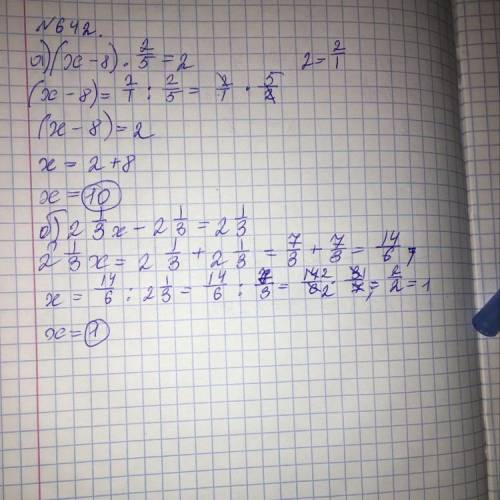 №642.
а) (x-8) · 2/5 = 2     2 = 2/1
(x-8) = 2/1 : 2/5 = 2/1 · 5/2
(x-8) = 2
x = 2+8
x = 10
б) 2 1/3 x - 2 1/3 = 2 1/3
2 1/3 x = 2 1/3 + 2 1/3 = 7/3 + 7/3 = 14/6;
x = 14/6 : 2 1/3 = 14/6 : 7/3 = 14 2/6 2 · 3 1/7 1 = 2/2 = 1
x = 1